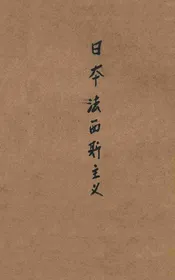 日本法西斯主义